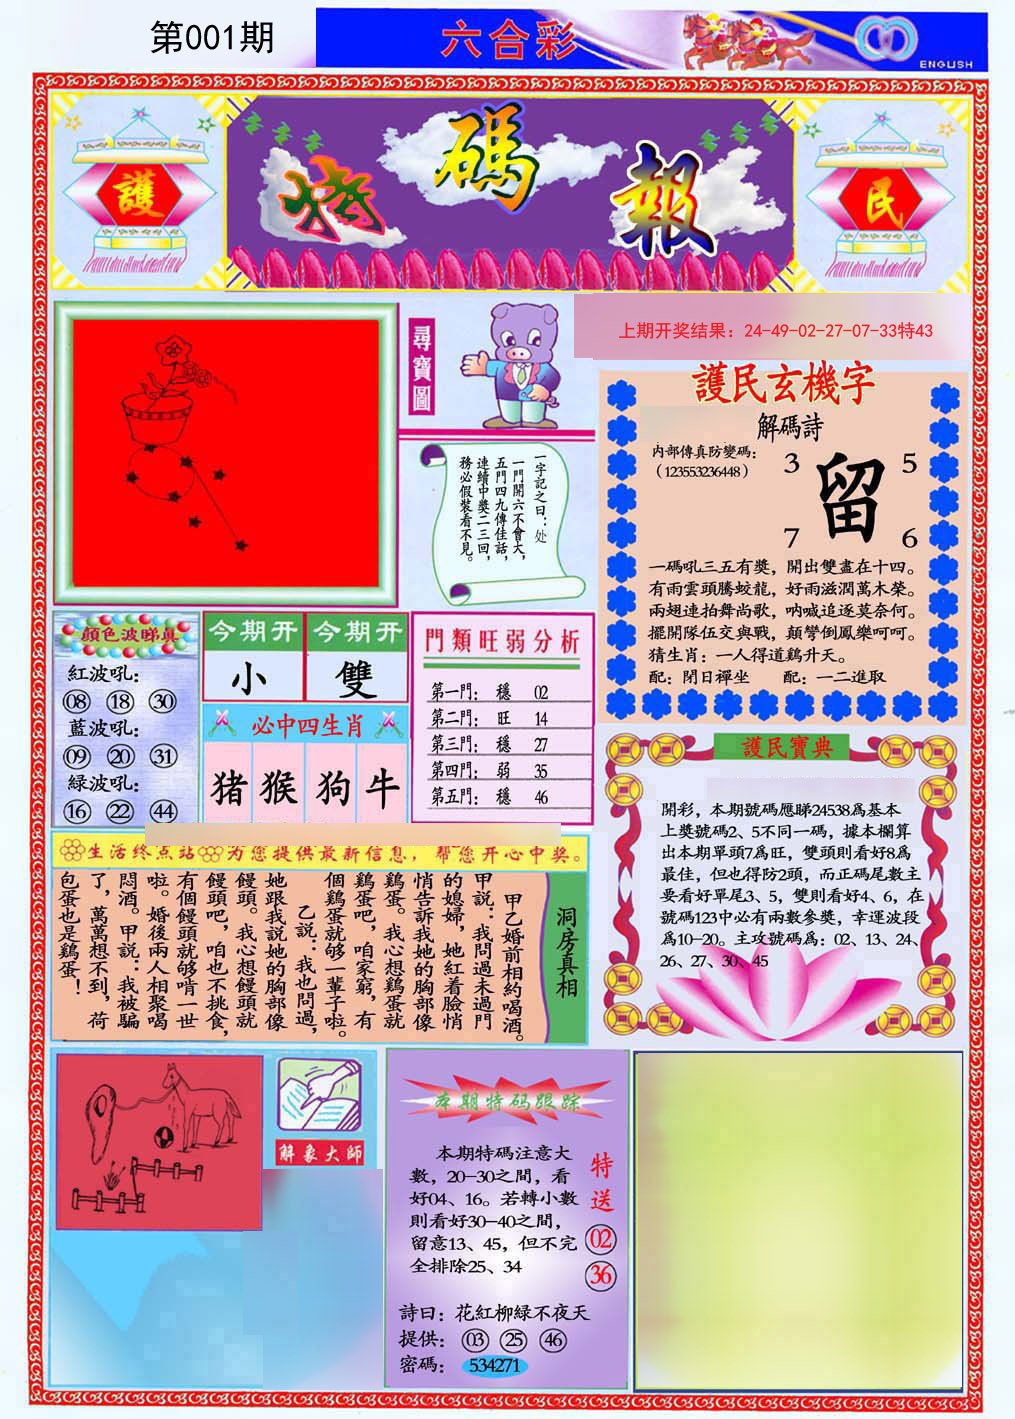 第001期
六合彩
ENGLISH
護
特碼報
民
尋寶圖
上期开奖结果：24-49-02-27-07-33特43
一字記之曰：处
一門開六不會大，
五門四九傳佳話，
連續中獎二三回，
務必假裝看不見。
護民玄機字
解碼詩
内部傳真防變碼：
（123553236448）
3 5
留
7 6
一碼吼三五有獎，開出雙盡在十四。
有雨雲頭騰蛟龍，好雨滋潤萬木榮。
兩翅連拍舞尚歌，呐喊追逐莫奈何。
擺開隊伍交與戰，顛鸞倒鳳樂呵呵。
猜生肖：一人得道鷄升天。
配：閉日禪坐 配：一二進取
顏色波睇真
紅波吼：
08 18 30
藍波吼：
09 20 31
綠波吼：
16 22 44
今期开 今期开
小 雙
必中四生肖
猪 猴 狗 牛
門類旺弱分析
第一門： 穩 02
第二門： 旺 14
第三門： 穩 27
第四門： 弱 35
第五門： 穩 46
護民寶典
開彩，本期號碼應睇24538爲基本
上獎號碼2、5不同一碼，據本欄算
出本期單頭7爲旺，雙頭則看好8爲
最佳，但也得防2頭，而正碼尾數主
要看好單尾3、5，雙則看好4、6，在
號碼123中必有兩數参獎，幸運波段
爲10-20。主攻號碼爲：02、13、24、
26、27、30、45
生活终点站 为您提供最新信息，帮您开心中奖。
洞房真相
甲乙婚前相約喝酒。
甲説：我問過未過門
的媳婦，她紅着臉悄
悄告訴我她的胸部像
鷄蛋。我心想鷄蛋就
鷄蛋吧，咱家窮，有
個鷄蛋就够一輩子啦。
乙説：我也問過，
她跟我説她的胸部像
饅頭。我心想饅頭就
饅頭吧，咱也不挑食，
有個饅頭就够啃一世
啦。婚後兩人相聚喝
悶酒。甲説：我被騙
了，萬萬想不到，荷
包蛋也是鷄蛋！
解象大師
本期特码跟踪
本期特碼注意大
數，20-30之間，看
好04、16。若轉小數
則看好30-40之間，
留意13、45，但不完
全排除25、34
特送
02
36
詩曰：花紅柳緑不夜天
提供： 03 25 46
密碼： 534271